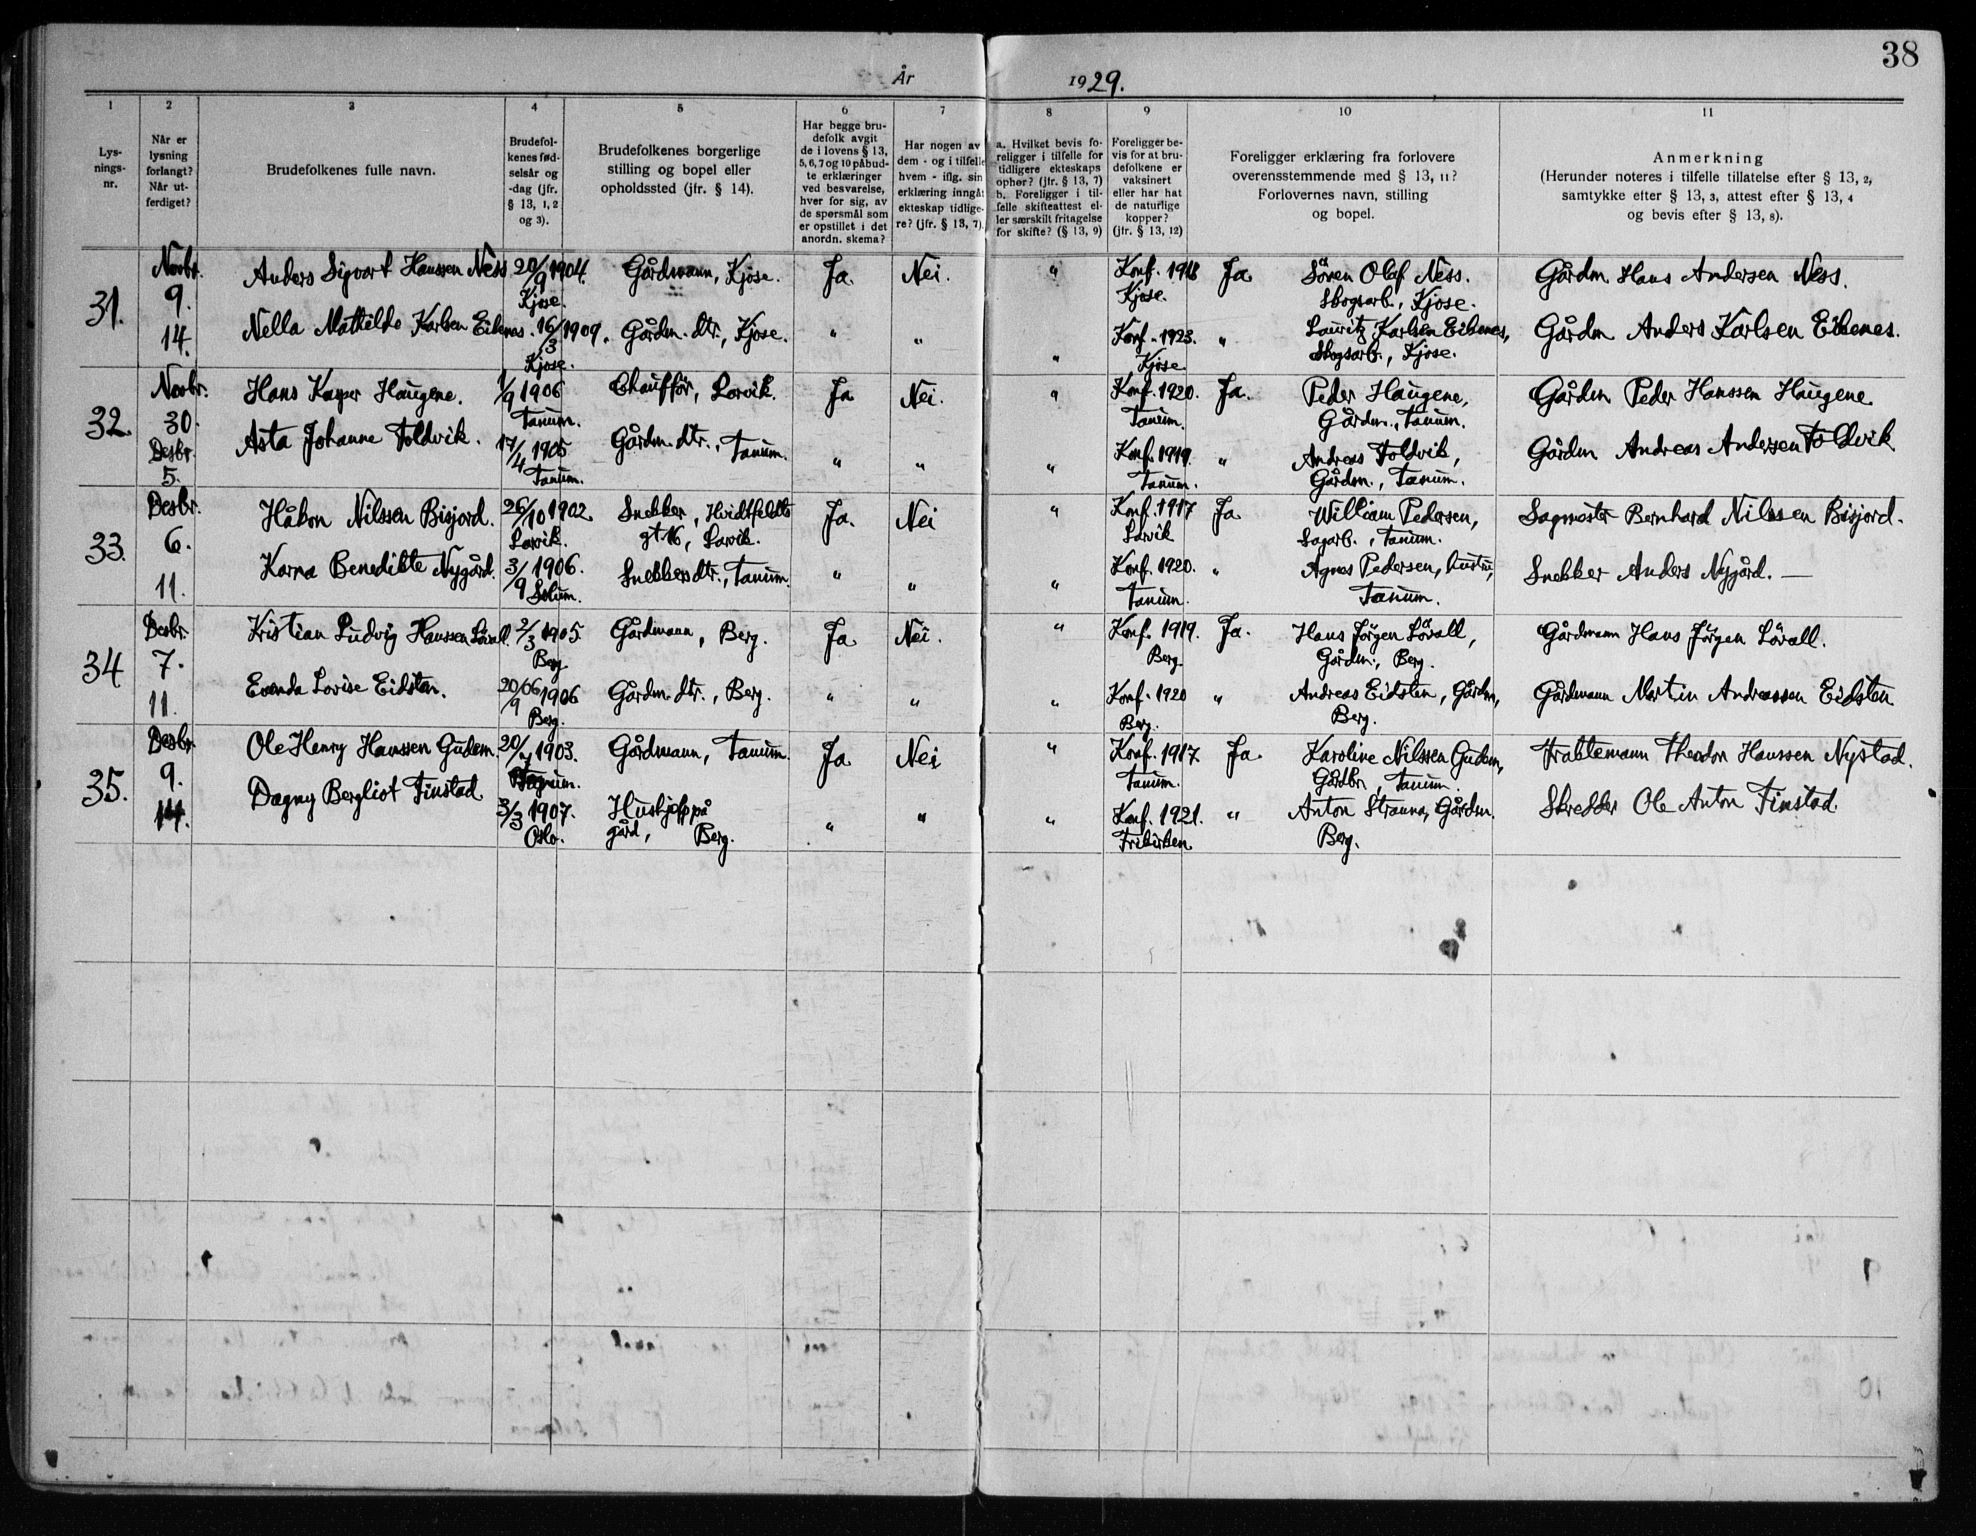 38
År 1929.
1 2 3 4 5 6 7 8 9 10 11
Lys-
nings-
nr.
Når er
lysning
forlangt?
Når ut-
ferdiget?
Brudefolkenes fulle navn.
Brudefol-
kenes fød-
selsår og
-dag (jfr.
§ 13, 1, 2
og 3).
Brudefolkenes borgerlige
stilling og bopel eller
opholdssted (jfr. § 14).
Har begge bru-
defolk avgit
de i lovens § 13,
5, 6, 7 og 10 påbud-
te erklæringer
ved besvarelse,
hver for sig, av
de spørsmål som
er opstillet i det
anordn. skema?
Har nogen av
dem - og i tilfelle
hvem - iflg. sin
erklæring inngåt
ekteskap tidlige-
re? (jfr. § 13, 7).
a. Hvilket bevis fo-
religger i tilfelle for
tidligere ekteskaps
ophør? (jfr. § 13, 7)
b. Foreligger i til-
felle skifteattest el-
ler særskilt fritagelse
for skifte? (§ 13, 9)
Foreligger be-
vis for at bru-
defolkene er
vaksinert
eller har hat
de naturlige
kopper?
(jfr. § 13, 12)
Foreligger erklæring fra forlovere
overensstemmende med § 13, 11?
Forlovernes navn, stilling
og bopel.
Anmerkning
(Herunder noteres i tilfelle tillatelse efter § 13, 2,
samtykke efter § 13, 3, attest efter § 13, 4
og bevis efter § 13, 8).
31.
Novbr.
9.
14.
Anders Sigvart Hanssen Ness 20/9 1904. Gårdmann, Kjose. Ja Nei. " Konf. 1918 Ja Sören Olaf Ness. Gårdm Hans Andersen Ness.
Kjose. Kjose. Skogsarb., Kjose.
Nella Mathilde Karlsen Eikenes. 16/3 1909. Gårdm. dtr., Kjose. " " " Konf. 1923. " Lauritz Karlsen Eikenes, Gårdm Anders Karlsen Eikenes.
Kjose. Kjose Skogsarb., Kjose.
32.
Novbr.
30.
Desbr.
5.
Hans Kasper Haugene. 1/9 1906 Chaufför, Larvik. Ja Nei. " Konf. 1920. Ja. Peder Haugene, Gårdm Peder Hanssen Haugene
Tanum. Tanum. Gårdm., Tanum.
Asta Johanne Foldvik. 17/4 1905 Gårdm. dtr., Tanum. " " " Konf. 1919. " Andreas Foldvik, Gårdm Andreas Andersen Foldvik
Tanum. Tanum. Gårdm., Tanum.
33.
Desbr.
6.
11.
Håkon Nilssen Bisjord. 26/10 1902 Snekker, Hvidtfeldts Ja. Nei " Konf. 1917 Ja William Pedersen, Sagmester Bernhard Nilssen Bisjord.
Larvik. gt 16, Larvik. Larvik Sagarb., Tanum.
Karna Benedikte Nygård. 3/9 1906. Snekkers dtr., Tanum. " " " Konf. 1920. " Agnes Pedersen, hustru, Snekker Anders Nygård. —
Solum. Tanum. Tanum.
34
Desbr.
7.
11.
Kristian Ludvig Hanssen Lövall. 2/3 1905. Gårdmann, Berg. Ja Nei. " Konf. 1919. Ja. Hans Jörgen Lövall, Gårdmann Hans Jörgen Lövall.
Berg Berg. Gårdm., Berg.
Evenda Lovise Eidsten. 20/9 1906 Gårdm. dtr., Berg. " " " Konf. 1920 " Andreas Eidsten, Gårdm, Gårdmann Martin Andreassen Eidsten
Berg. Berg. Berg.
35.
Desbr.
9.
14.
Ole Henry Hanssen Gudem. 20/7 1903. Gårdmann, Tanum. Ja Nei " Konf. 1917 Ja. Karoline Nilssen Gudem, Fraktemann Theodor Hanssen Nystad.
Tanum. Gårdbr, Tanum.
Dagny Bergliot Finstad 3/3 1907. Hushjelp på " " " Konf. 1921. " Anton Straume, Gårdm. Skredder Ole Anton Finstad.
Oslo. gård, Berg. Frikirken Berg.